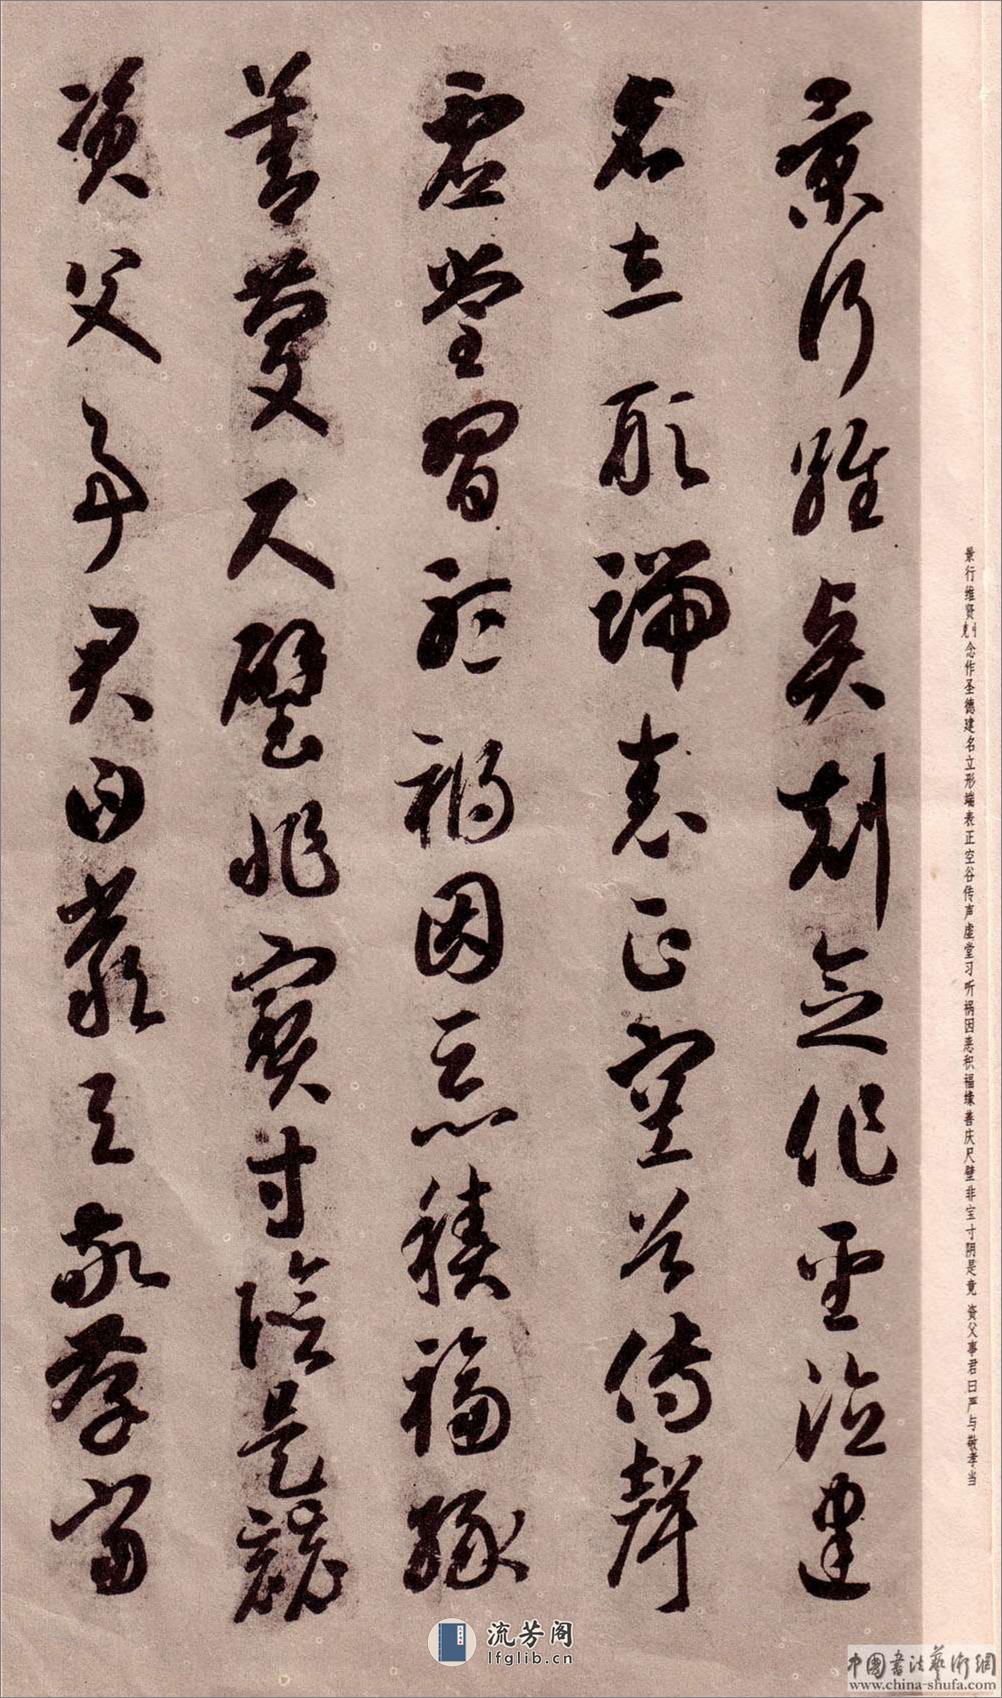 景行維賢剋念作聖德建
名立形端表正空谷傳聲
虛堂習聽禍因惡積福緣
善慶尺璧非寶寸陰是競
資父事君曰嚴與敬孝當
景行维贤克念作圣德建名立形端表正空谷传声虚堂习听祸因恶积福缘善庆尺璧非宝寸阴是竟 资父事君曰严与敬孝当
流芳阁
lfglib.cn
中国书法艺术网
www.china-shufa.com